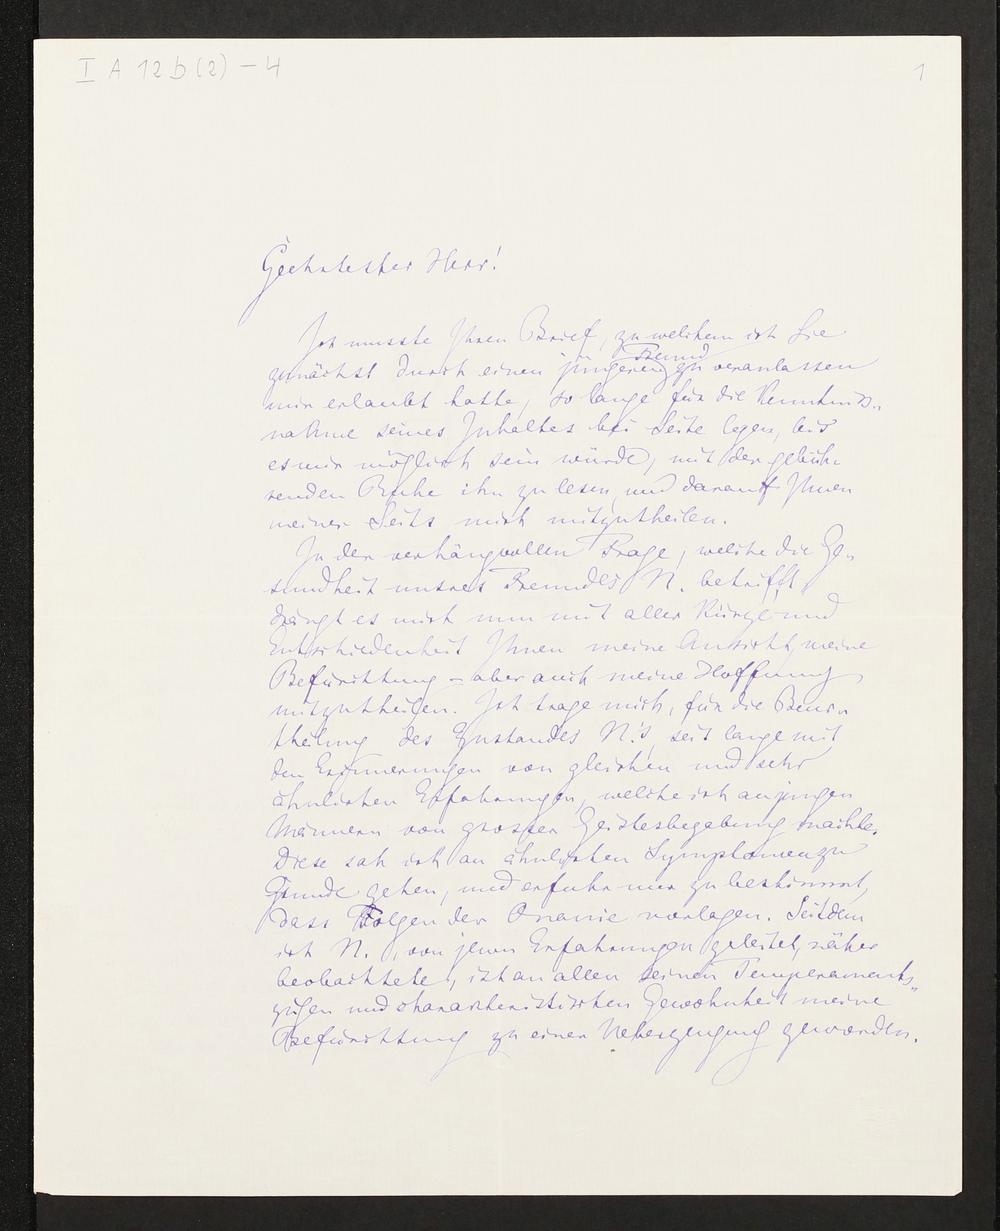 I A 12 b (2) – 4
1
Geehrtester Herr!
Ich musste Ihren Brief, zu welchem ich Sie
Freund
zunächst durch einen jüngeren zu veranlassen
mir erlaubt hatte, so lange für die Kenntniss-
nahme seines Inhaltes bei Seite legen, bis
es mir möglich sein würde, mit der gebüh-
renden Ruhe ihn zu lesen, und darauf Ihnen
meiner Seits mich mitzutheilen.
In der verhängvollen Frage, welche die Ge-
sundheit unsres Freundes N. betrifft,
drängt es mich nun mit aller Kürze und
Entschiedenheit Ihnen meine Ansicht, meine
Befürchtung – aber auch meine Hoffnung
mitzutheilen. Ich trage mich, für die Beur-
theilung des Zustandes N.'s, seit lange mit
den Erinnerungen von gleichen und sehr
ähnlichen Erfahrungen, welche ich an jungen
Männern von grosser Geistesbegabung machte.
Diese sah ich an ähnlichen Symptomen zu
Grunde gehen, und erfuhr nur zu bestimmt,
dass Folgen der Onanie vorlagen. Seitdem
ich N., von jenen Erfahrungen geleitet, näher
beobachtete, ist an allen seinen Temperaments-
zügen und charakteristischen Gewohnheit meine
Befürchtung zu einer Ueberzeugung geworden.